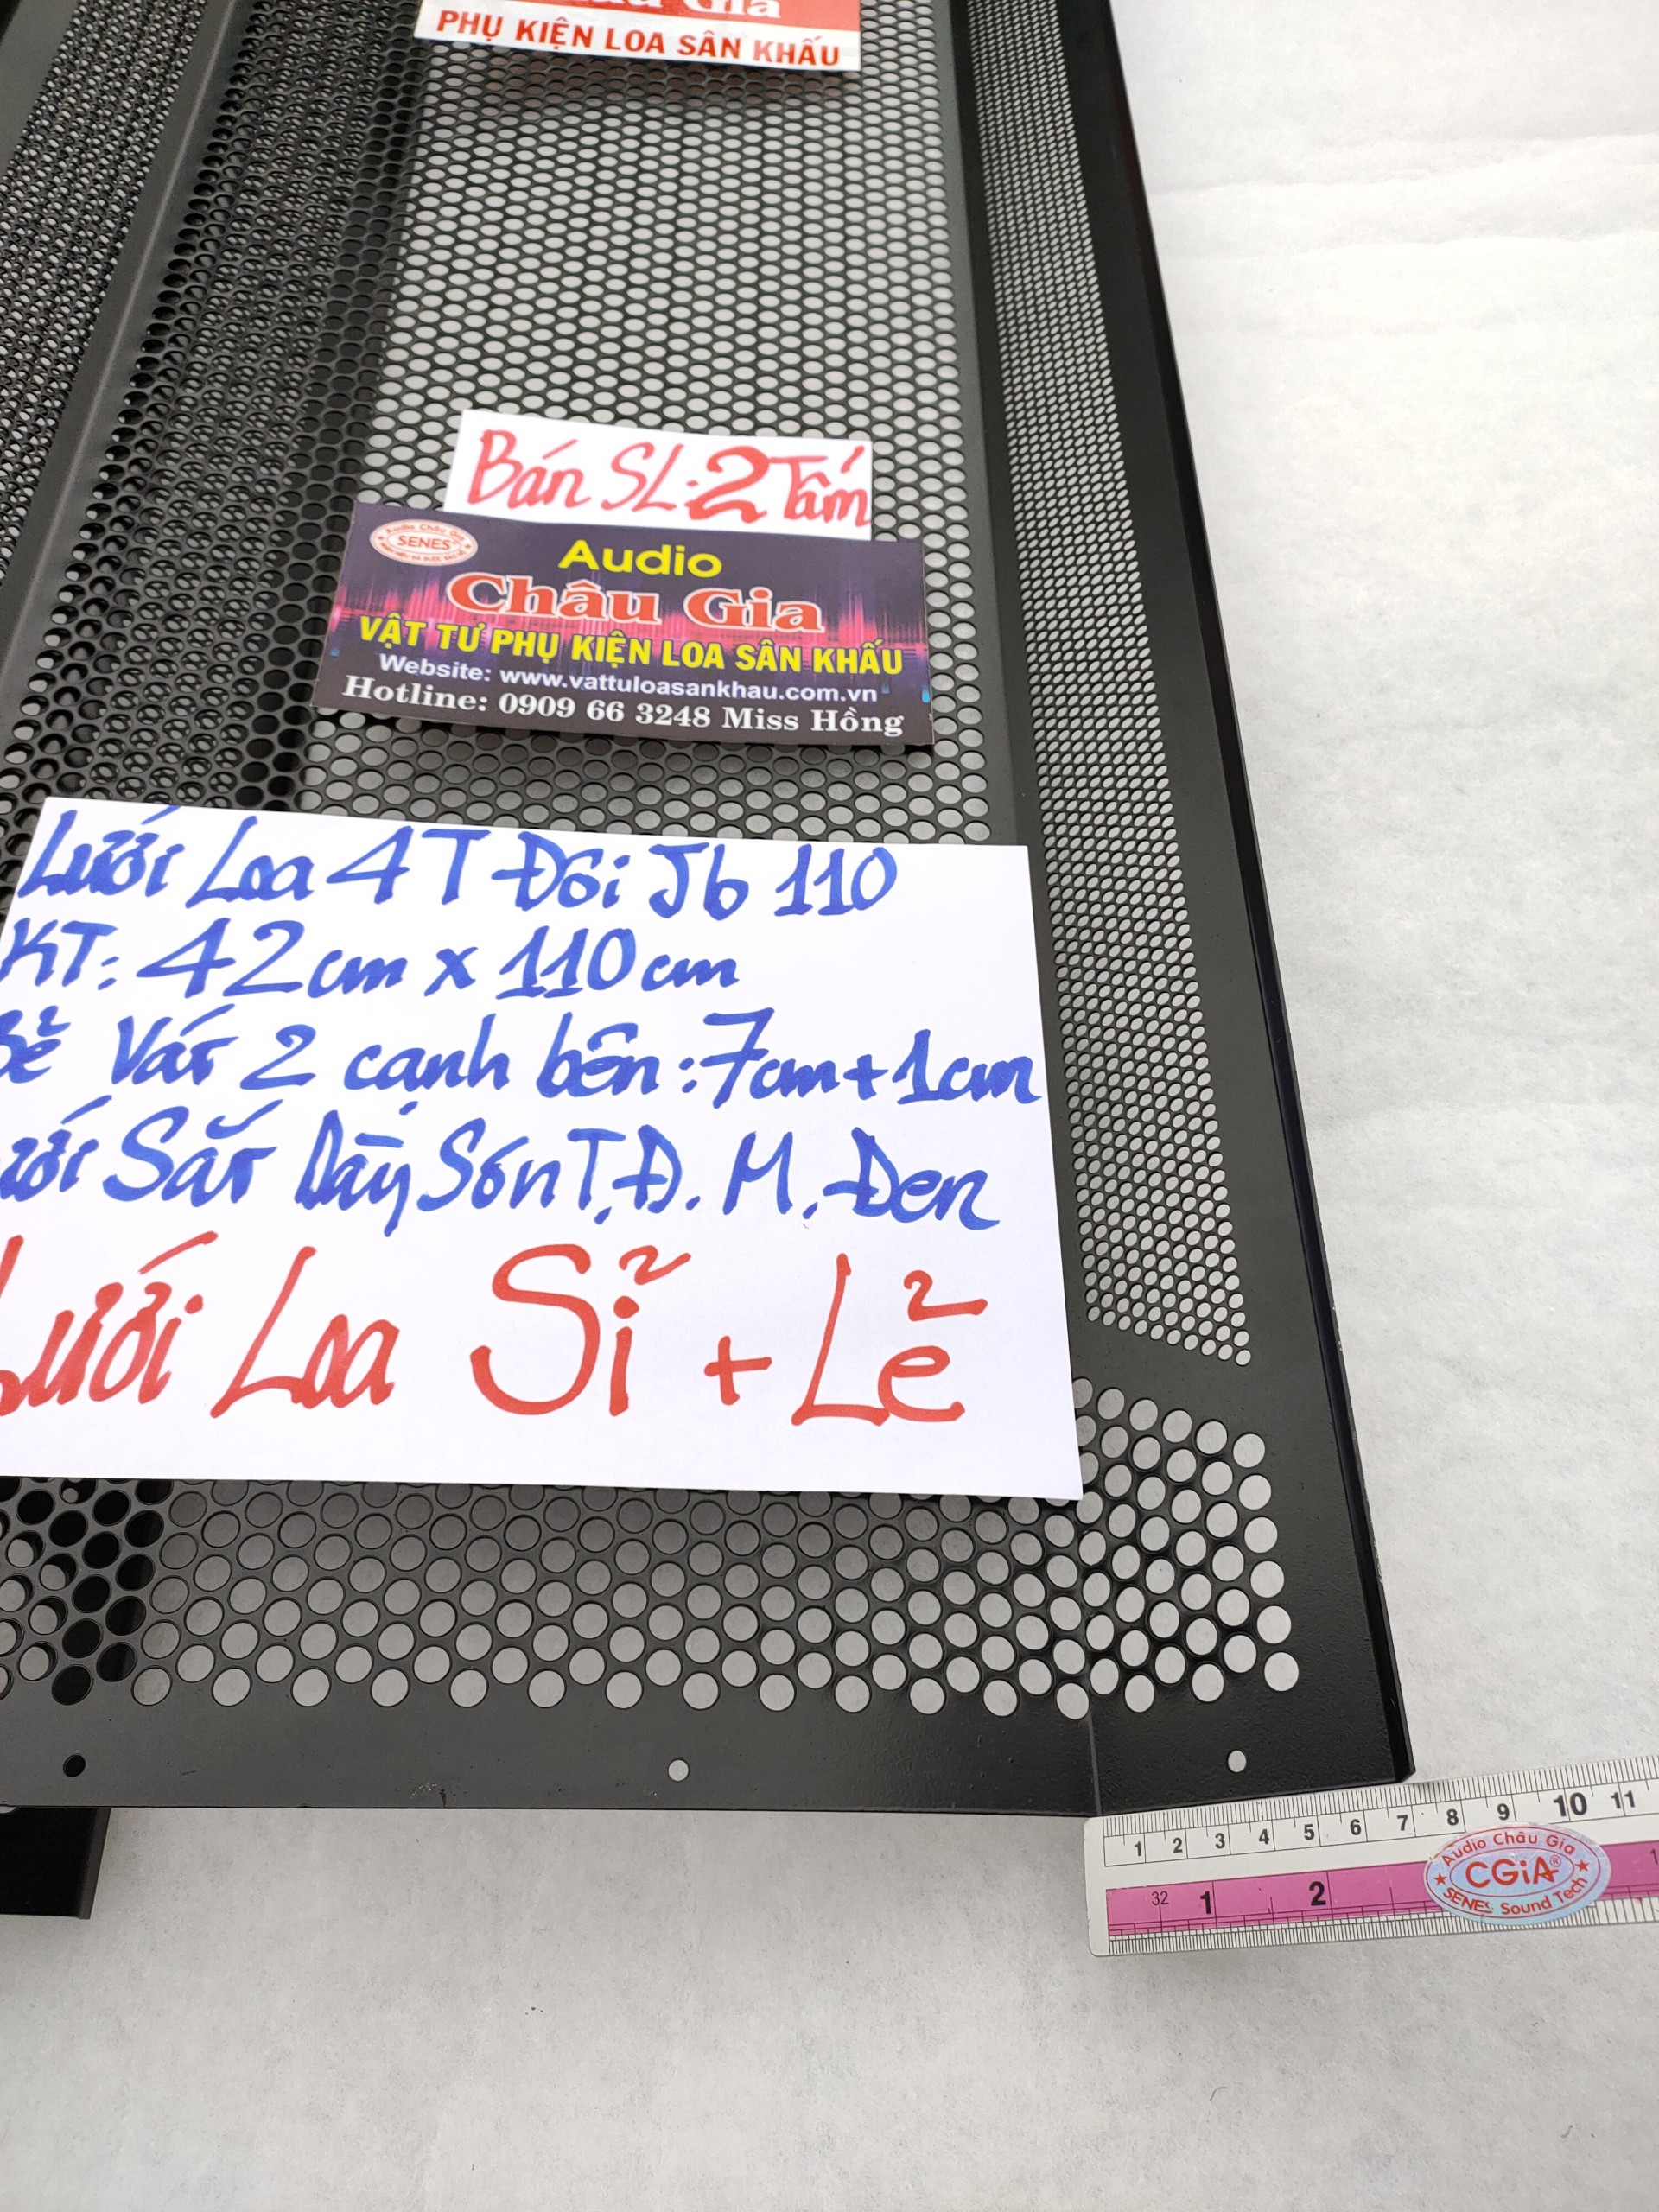 Gia
PHỤ KIỆN LOA SÂN KHẤU
Bán SL: 2 Tấm
Audio Châu Gia
SENES
Audio
Châu Gia
VẬT TƯ PHỤ KIỆN LOA SÂN KHẤU
Website: www.vattuloasankhau.com.vn
Hotline: 0909 66 3248 Miss Hồng
Lưới Loa 4T Đôi Jb 110
KT: 42cm x 110cm
Bẻ Vát 2 cạnh bên: 7cm + 1cm
Sắt Dày Sơn T.Đ. M. Đen
Lưới Loa Sỉ + Lẻ
1 2 3 4 5 6 7 8 9 10 11
32 1 2
Audio Châu Gia
CGiA®
SENES Sound Tech